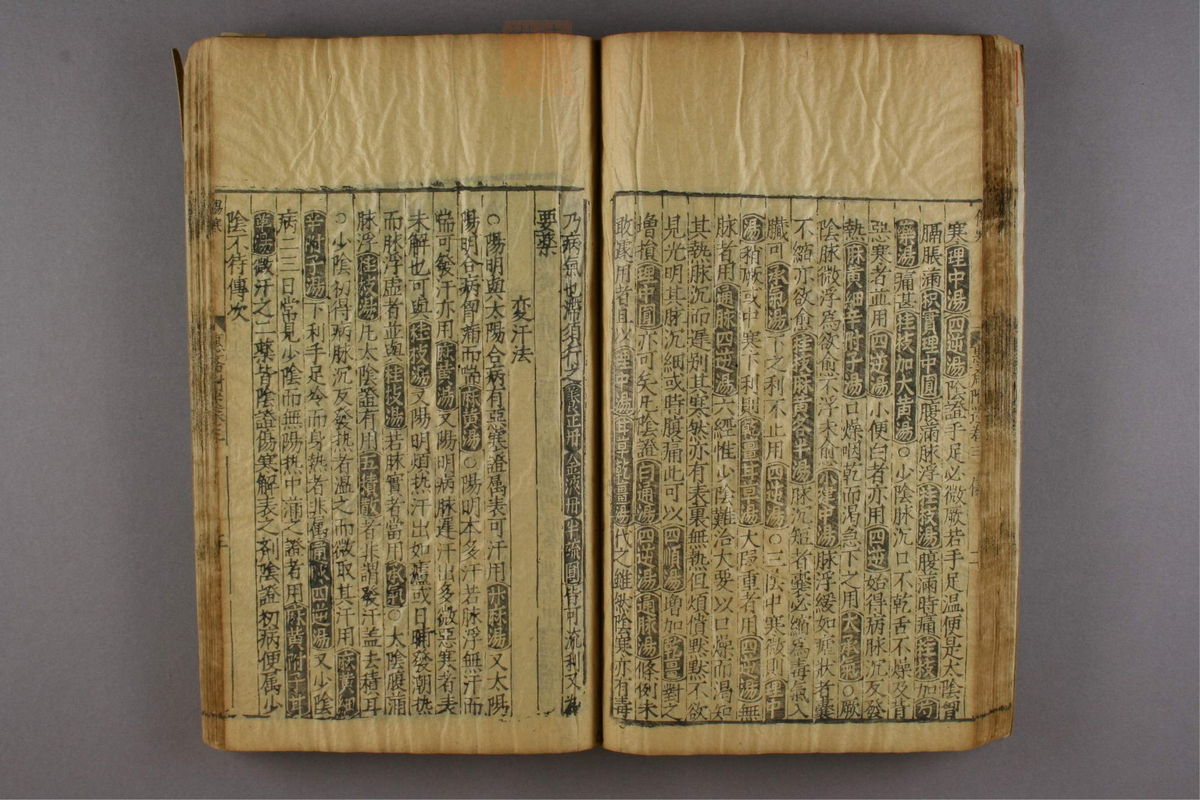 寒理中湯四逆湯陰證手足必微厥若手足温便是太陰胷
膈脹滿枳實理中圓腹滿脉浮桂枝湯腹滿時痛桂枝加芍
藥湯痛甚桂枝加大黄湯○少陰脉沉口不乾舌不燥及背
惡寒者並用四逆湯小便白者亦用四逆始得病脉沉反發
熱麻黄細辛附子湯口燥咽乾而渴急下之用大承氣○厥
陰脉微浮爲欲愈不浮未愈小建中湯脉浮緩如瘧狀者囊
不縮亦欲愈桂枝麻黄各半湯脉沉短者囊必縮爲毒氣入
臓可承氣湯下之利不止用四逆湯○三陰中寒微則理中
湯稍厥或中寒下利則乾薑甘草湯大段重者用四逆湯無
脉者用通脉四逆湯六經惟少陰難治大要以口燥而渴知
其熱脉沉而遲別其寒然亦有表裏無熱但煩憒默默不欲
見光明其脉沉細或時腹痛此可以四順湯增加乾薑對之
增損理中圓亦可矣凡陰證白通湯四逆湯通脉湯條例未
敢疎用者且以理中湯甘草乾薑湯代之雖然陰寒亦有毒
乃病氣也滯須行之養正丹金液丹半硫圓皆可流利又爲
要藥
変汗法
○陽明與太陽合病有惡寒證属表可汗用升麻湯又太陽
陽明合病胷痛而喘麻黄湯○陽明本多汗若脉浮無汗而
喘可發汗亦用麻黄湯又陽明病脉遲汗出多微惡寒者表
未解也可與桂枝湯又陽明煩热汗出如瘧或日晡發潮热
而脉浮虚者並與桂枝湯若脉實者當用承氣○太陰腹滿
脉浮桂枝湯凡太陰證有用五積散者非謂發汗盖去積耳
○少陰初得病脉沉反發热者溫之而微取其汗用麻黄細
辛附子湯下利手足冷而身熱者非四逆湯又少陰
病二三日常見少陰而無陽热中滿之證者用麻黄附子甘
草湯微汗之二藥皆陰證傷寒解表之剤陰證初病便属少
陰不待傳次